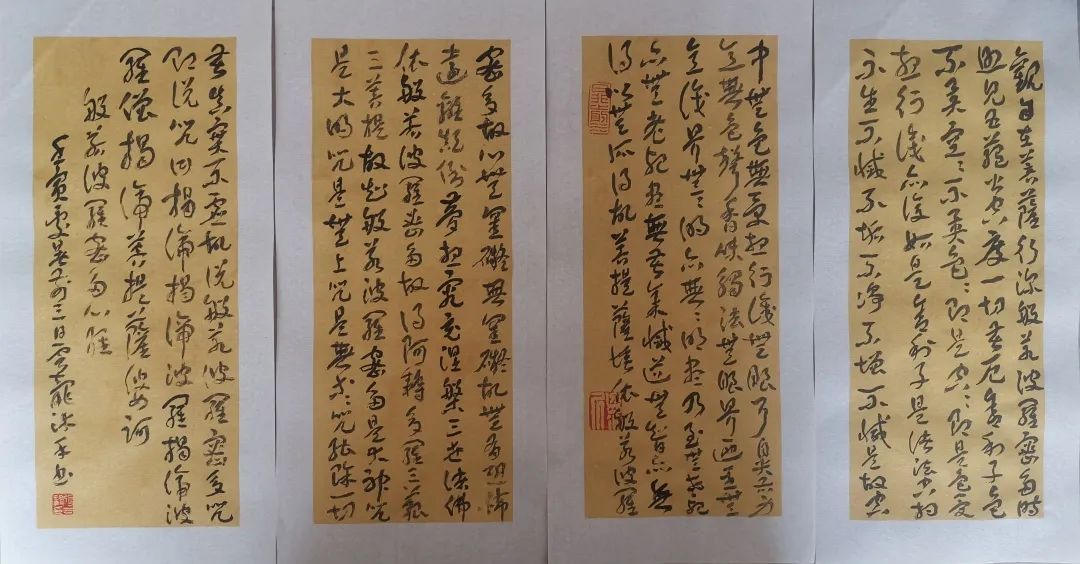 觀自在菩薩行深般若波羅蜜多時
照見五蘊皆空度一切苦厄舍利子色
不異空〻不異色〻即是空〻即是色受
想行識亦復如是舍利子是諸法空相
不生不滅不垢不淨不增不減是故空
中無色無受想行識無眼耳鼻舌身
意無色聲香味觸法無眼界乃至無
意識界無〻明亦無〻明盡乃至無老死
亦無老死盡無苦集滅道無智亦無
得以無所得故菩提薩埵依般若波羅
蜜多故心無罣礙無罣礙故無有恐怖
遠離顛倒夢想究竟涅槃三世諸佛
依般若波羅蜜多故得阿耨多羅三藐
三菩提故知般若波羅蜜多是大神咒
是大明咒是無上咒是無等〻咒能除一切
苦真實不虛故說般若波羅蜜多咒
即說咒曰揭諦揭諦波羅揭諦波
羅僧揭諦菩提薩婆訶
般若波羅蜜多心經
壬寅三日书